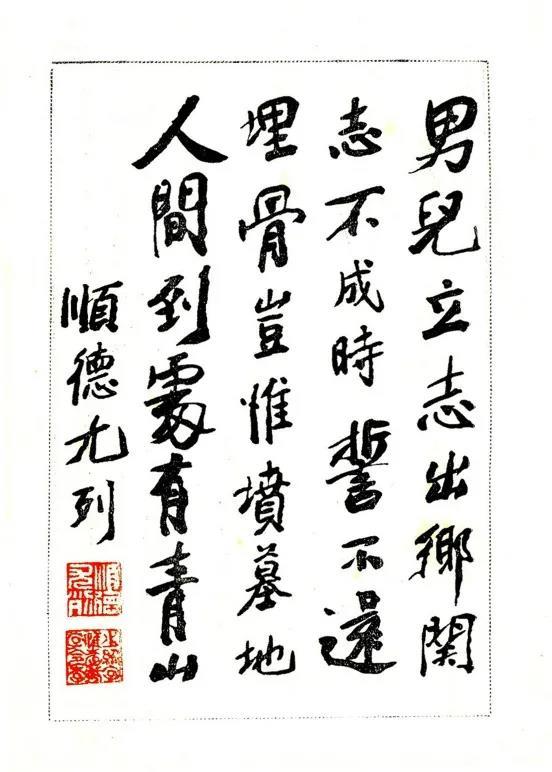 男兒立志出鄉關
志不成時誓不還
埋骨豈惟墳墓地
人間到處有青山
順德尤列
順德尤列